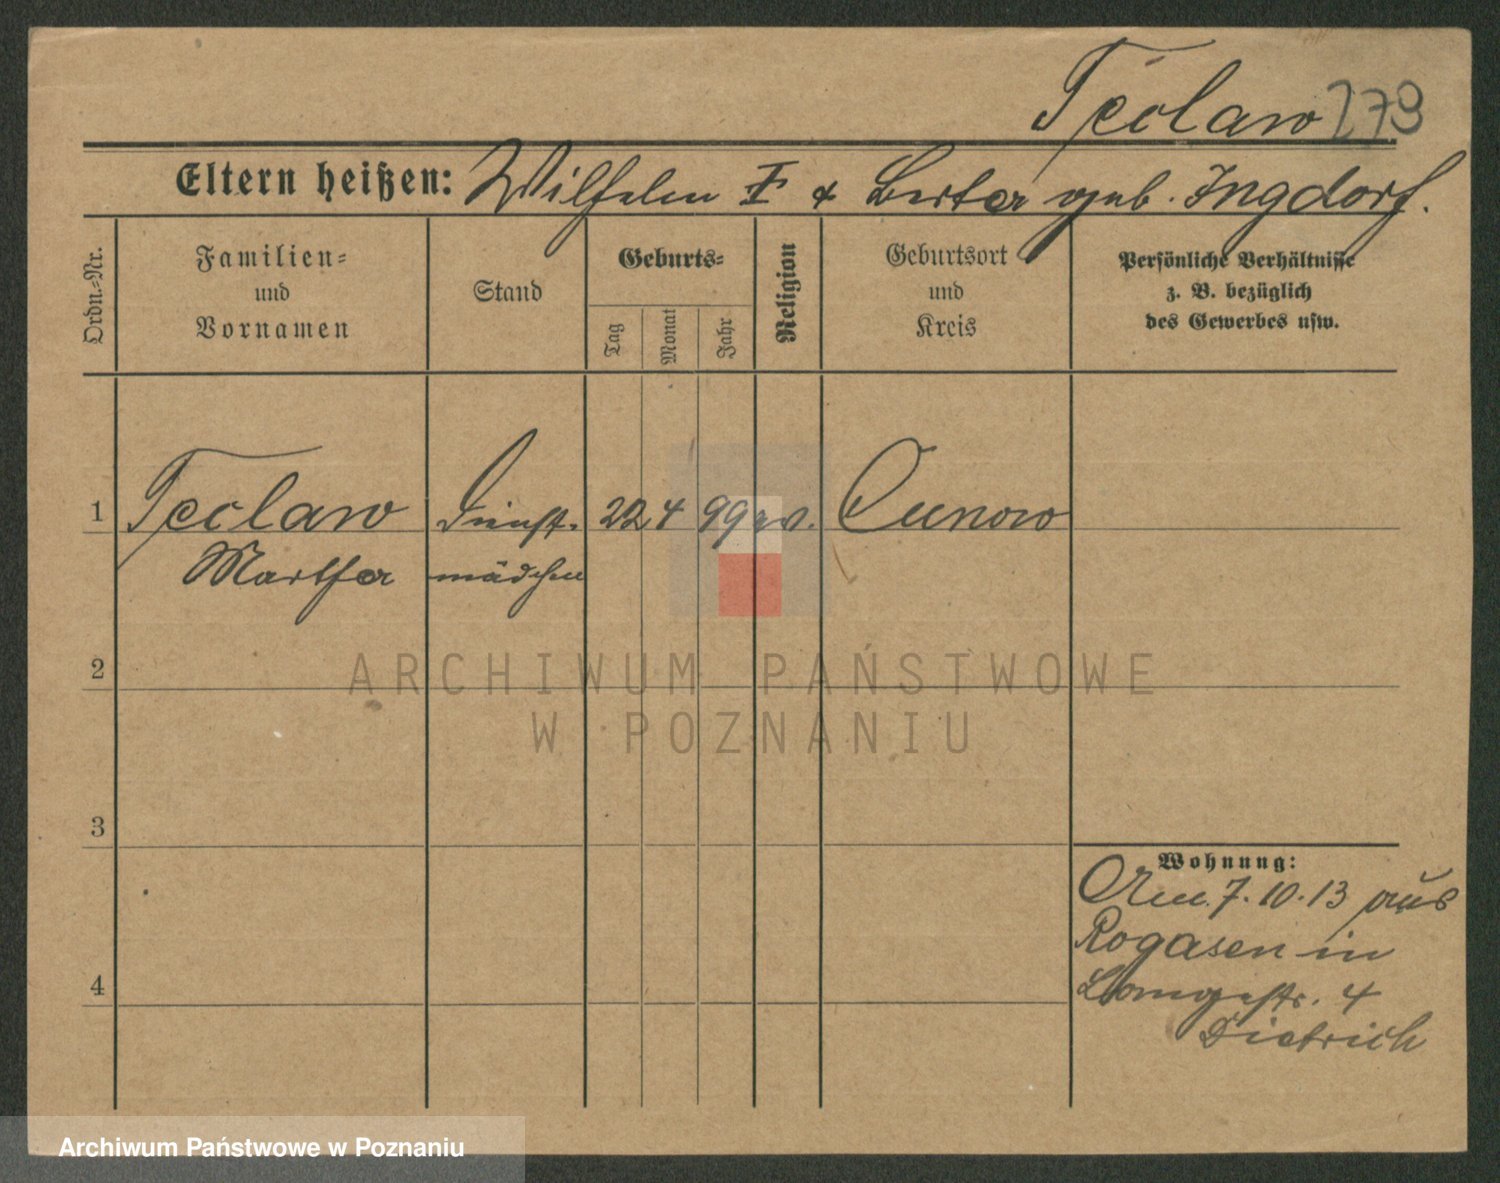 Teclaw 279
Eltern heißen: Wilhelm T & Berta geb. Ingdorf.
Ordn.-Nr.
Familien-
und
Vornamen
Stand
Geburts-
Tag
Monat
Jahr
Religion
Geburtsort
und
Kreis
Persönliche Verhältnisse
z. B. bezüglich
des Gewerbes usw.
1 Teclaw Dienst- 22 4 99 ev. Cunow
Martha mädchen
ARCHIWUM PAŃSTWOWE
2
W POZNANIU
3
Wohnung:
Am. 7.10.13 aus
Rogasen in
4 Langestr. 4
Dietrich
Archiwum Państwowe w Poznaniu